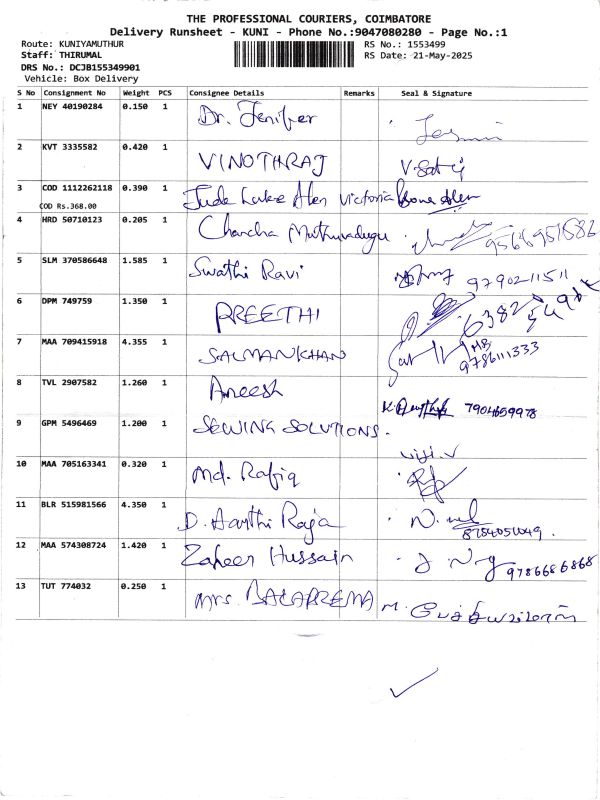 THE PROFESSIONAL COURIERS, COIMBATORE
Delivery Runsheet - KUNI - Phone No.:9047080280 - Page No.:1
Route: KUNIYAMUTHUR RS No.: 1553499
Staff: THIRUMAL RS Date: 21-May-2025
DRS No.: DCJB155349901
Vehicle: Box Delivery
S No Consignment No Weight PCS Consignee Details Remarks Seal & Signature
1 NEY 40190284 0.150 1 Dr. Jenifer
2 KVT 3335582 0.420 1 VINOTHRAJ
3 COD 1112262118 0.390 1 Jude Luke Alen Victoria
COD Rs.368.00
4 HRD 50710123 0.205 1 Chandra Muthuvadugu
5 SLM 370586648 1.585 1 Swathi Ravi 9790211511
6 DPM 749759 1.350 1 PREETHI
7 MAA 709415918 4.355 1 SALMANKHAN 9786111333
8 TVL 2907582 1.260 1 Aneesh 7904659978
9 GPM 5496469 1.200 1 SEWING SOLUTIONS.
10 MAA 705163341 0.320 1 Md. Rafiq
11 BLR 515981566 4.350 1 D. Aarthi Raja
12 MAA 574308724 1.420 1 Zaheer Hussain 9786686868
13 TUT 774032 0.250 1 Mrs. BALAPREMA